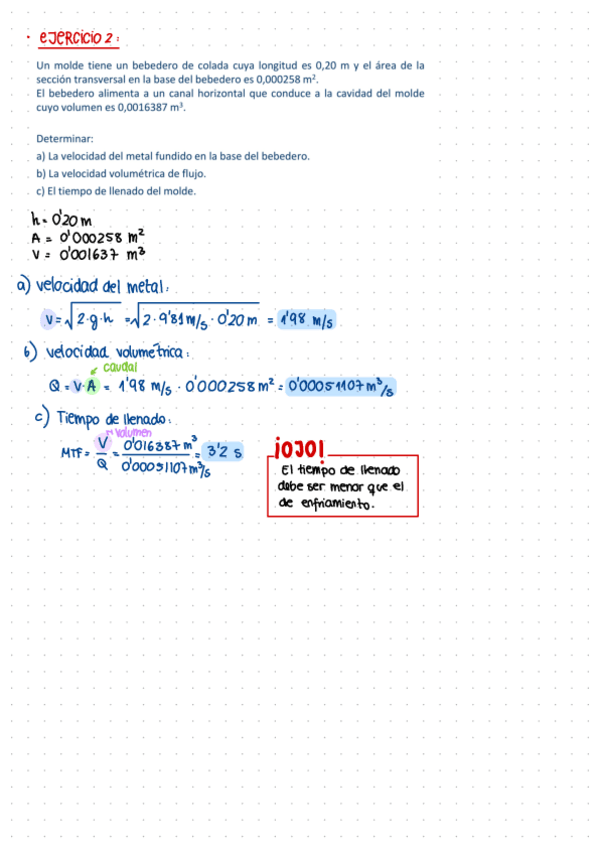 · EJERCICIO 2:
Un molde tiene un bebedero de colada cuya longitud es 0,20 m y el área de la
sección transversal en la base del bebedero es 0,000258 m².
El bebedero alimenta a un canal horizontal que conduce a la cavidad del molde
cuyo volumen es 0,0016387 m³.
Determinar:
a) La velocidad del metal fundido en la base del bebedero.
b) La velocidad volumétrica de flujo.
c) El tiempo de llenado del molde.
h = 0'20 m
A = 0'000258 m²
V = 0'001637 m³
a) velocidad del metal:
V = √2·g·h = √2·9'81 m/s · 0'20 m = 1'98 m/s
b) velocidad volumétrica:
caudal
Q = V·A = 1'98 m/s · 0'000258 m² = 0'00051107 m³/s
c) Tiempo de llenado:
volumen
MTF = V/Q = 0'016387 m³/0'00051107 m³/s = 3'2 s
¡OJO!
El tiempo de llenado
debe ser menor que el
de enfriamiento.